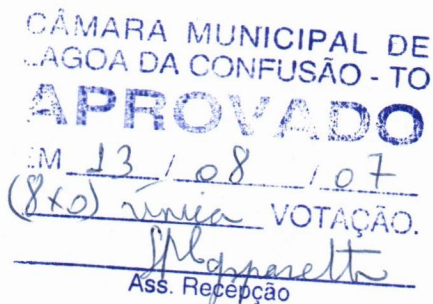 CÂMARA MUNICIPAL DE
LAGOA DA CONFUSÃO - TO
APROVADO
EM 13 / 08 / 07
(8x0) única VOTAÇÃO.
Ass. Recepção